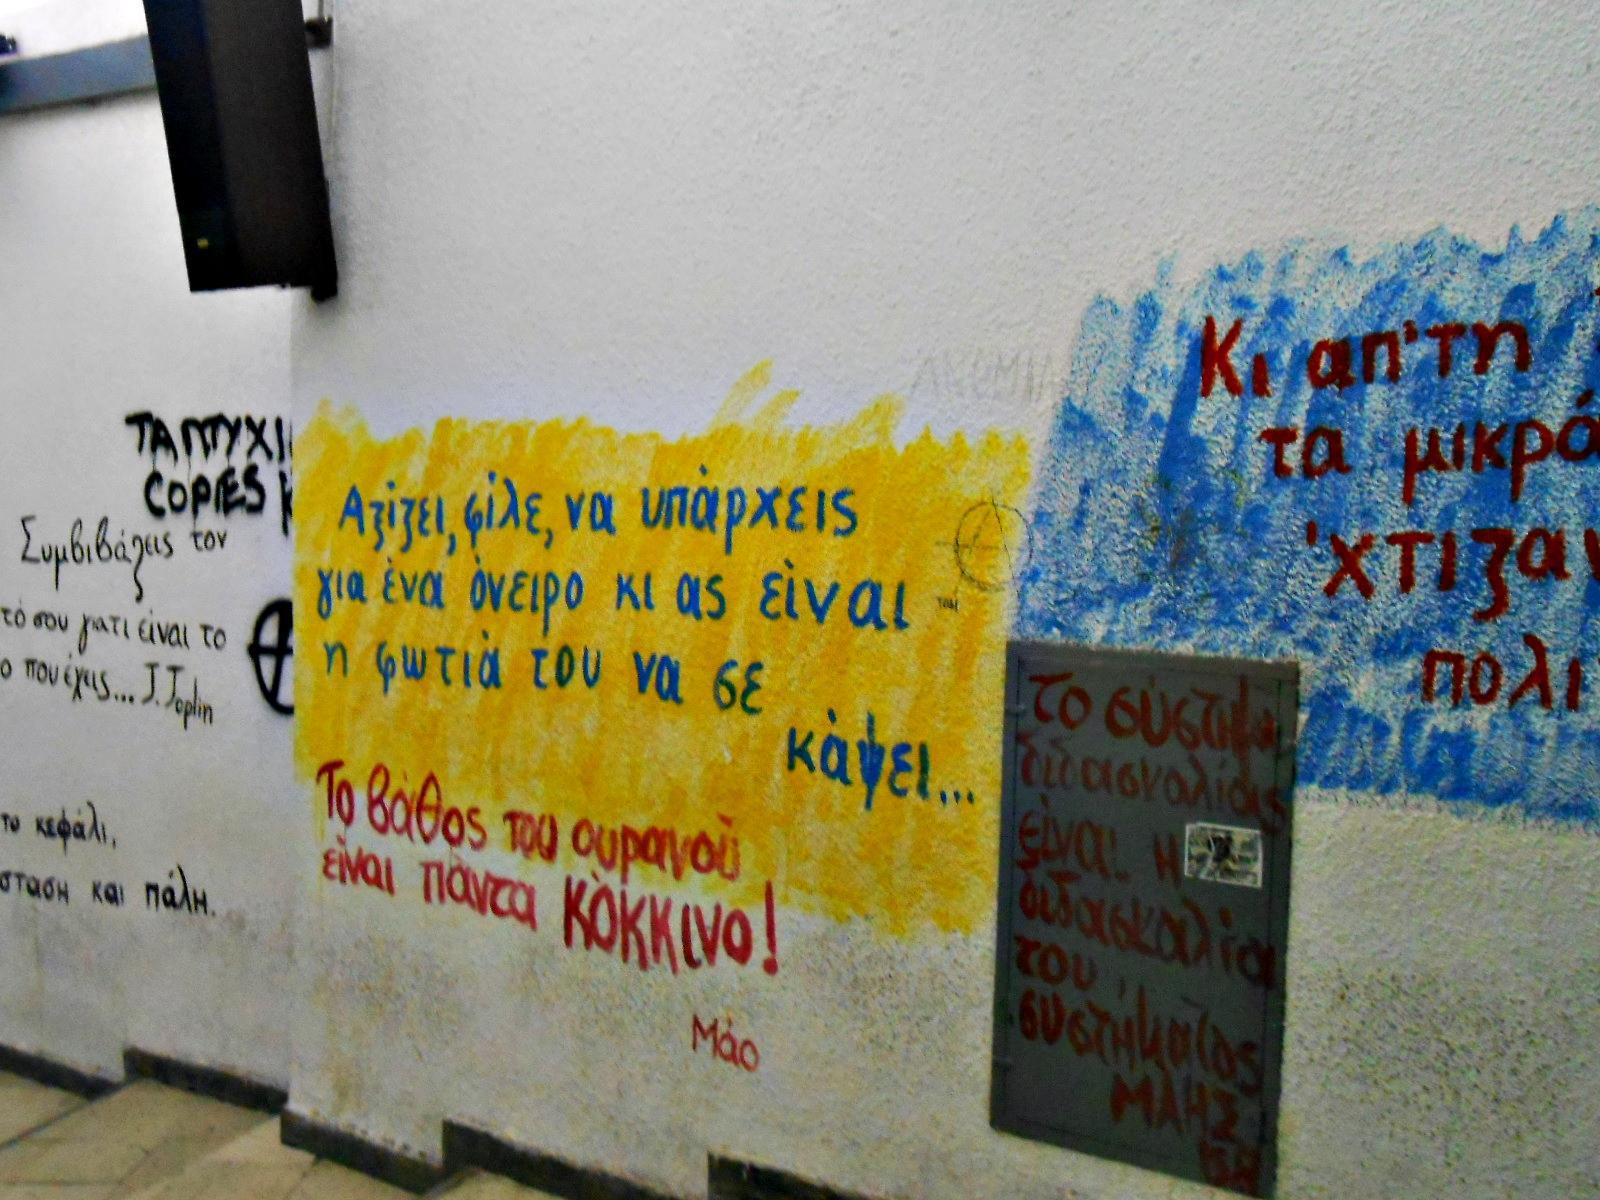 ΤΑ ΠΤΥΧΙ
COPIES
Συμβιβάζεις τον
τό σου γιατί είναι το
ο που έχεις... J. Joplin
το κεφάλι,
σταση και πάλη.
Αξίζει, φίλε, να υπάρχεις
για ένα όνειρο κι ας είναι
η φωτιά του να σε
κάψει...
Το βάθος του ουρανού
είναι πάντα ΚΌΚΚΙΝΟ!
Μάο
ΑΝΟΜΙΑ
Κι απ'τη
τα μικρό
'χτιζαν
πολι
Το σύστημα
διδασκαλίας
είναι η
διδασκαλία
του
συστήματος
ΜΑΗΣ
68